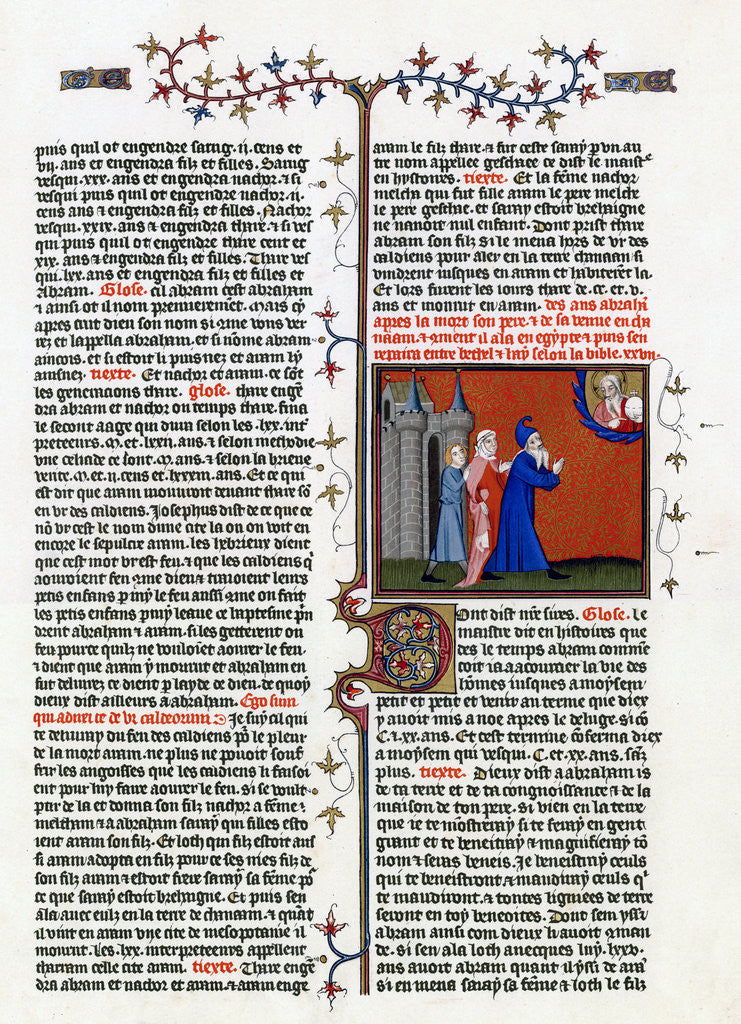 puis quil ot engendre sarug .ii. cens et
vii. ans et engendra filz et filles. Sarug
vesqui .xxx. ans et engendra nachor. et si
vesqui puis quil ot engendre nachor .ii.
cens ans et engendra filz et filles. Nachor
vesqui .xxix. ans et engendra thare. et si ves
qui puis quil ot engendre thare cent et
xix. ans et engendra filz et filles. Thare ves
qui .lxx. ans et engendra filz et filles et
Abram. Glose. cil abram cest abraham
et ainsi ot il nom premierement. Mais
apres tout dieu son nom si
rez et lappella abraham. et si nome abram
aincois. et si estoit il puis nez et aram
ainsnez. tiexte. Et nachor et aram. ce sōt
les generacions thare. glose. thare engē
dra abram et nachor ou temps thare. fina
le second aage qui dura selon les .lxx. int
preteeurs .M. et .lxxii. ans. et selon methodie
vne celiade ce sont .M. ans. et selon la brieue
verite .M. et .ii. cens et .lxxxii. ans. Et ce qui
est dit que aram mourout deuant thare sō
en vr des caldiens. Josephus dist de ce que ce
nō vr cest le nom dune cite la ou on voit en
encore le sepulcre aram. les hebrieux dient
que cest mot vr est feu. et que les caldiens q
aouroient feu
petis enfans feu aussi on fait
les petis enfans leaue ce baptesme
drent abraham et aram. si les getterent ou
feu pource quilz ne vouloient aourer le feu.
et dient que aram y mourut et abraham en
fut deliurez ce dient layde de dieu. de quoy
dieux dist ailleurs a abraham. Ego sum
qui adurei te de vr caldeorum Je suy cil qui
te deliuray du feu des caldiens le pleur
de la mort aram. ne plus ne pouoit souf
frir les angoisses que les caldiens li faisoi
ent pour luy faire aourer le feu. si se voult
ptir de la et donna son filz nachor a feme
melcham et a abraham saray qui filles esto
ient aram son filz. Et loth qui filz estoit ara
si aram adopta en filz pource ses nies filz de
son filz aram et estoit frere saray sa feme
ce que saray estoit brehaigne. Et puis sen
ala auec eulz en la terre de chanaam. et quāt
il vint en aram vne cite de mesopotanie il
mourut. les .lxx. interpreteeurs appellent
charram celle cite aram. tiexte. Thare engē
dra abram et nachor et aram. et aram enge
aram le filz thare. et fut ceste saray vn au
tre nom appellee geschaee ce dist le maist
en hystoires. tiexte. Et la feme nachor
melcha qui fut fille aram le pere melche
le pere geschae. et saray estoit brehaigne
ne nauoit nul enfant. Dont prist thare
abram son filz si le mena hors de vr des
caldiens pour aler en la terre chanaan si
vindrent iusques en aram et habiterēt la.
Et lors furent les iours thare de .cc. et .v.
ans et mourut en aram. des ans abrahā
apres la mort son pere. et de sa venue en cha
naam. et il ala en egypte et puis sen
repaira entre bethel et hay selon la bible. xxvii.
Dont dist sires. Glose. le
maistre dit en histoires que
des le temps abram commē
coit ia a acourcier la vie des
hōmes iusques a moysem
petit et petit et venir au terme que diex
y auoit mis a noe apres le deluge. si cō
C. et .xx. ans. Et cest termine cōferma diex
a moysem qui vesqui .C. et .xx. ans. sāz
plus. tiexte. Dieux dist a abraham is
de ta terre et de ta congnoissance et de la
maison de ton pere. si vien en la terre
que ie te mōstreray si te feray en gent
grant et te beneitray et magnifieray tō
nom et seras beneis. Je beneistray ceuls
qui te beneistront et maudiray ceuls q
te maudiront. et toutes lignees de terre
seront en toy beneoites. Dont sem yssi
abram ainsi com dieux li auoit man
de. si sen ala loth auecques luy. lxxv.
ans auoit abram quant il yssi de arā
si en mena saray sa feme et loth le filz